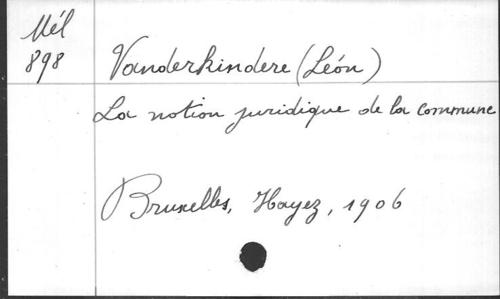 Mél
898
Vanderkindere (Léon)
La notion juridique de la commune
Bruxelles, Hayez, 1906